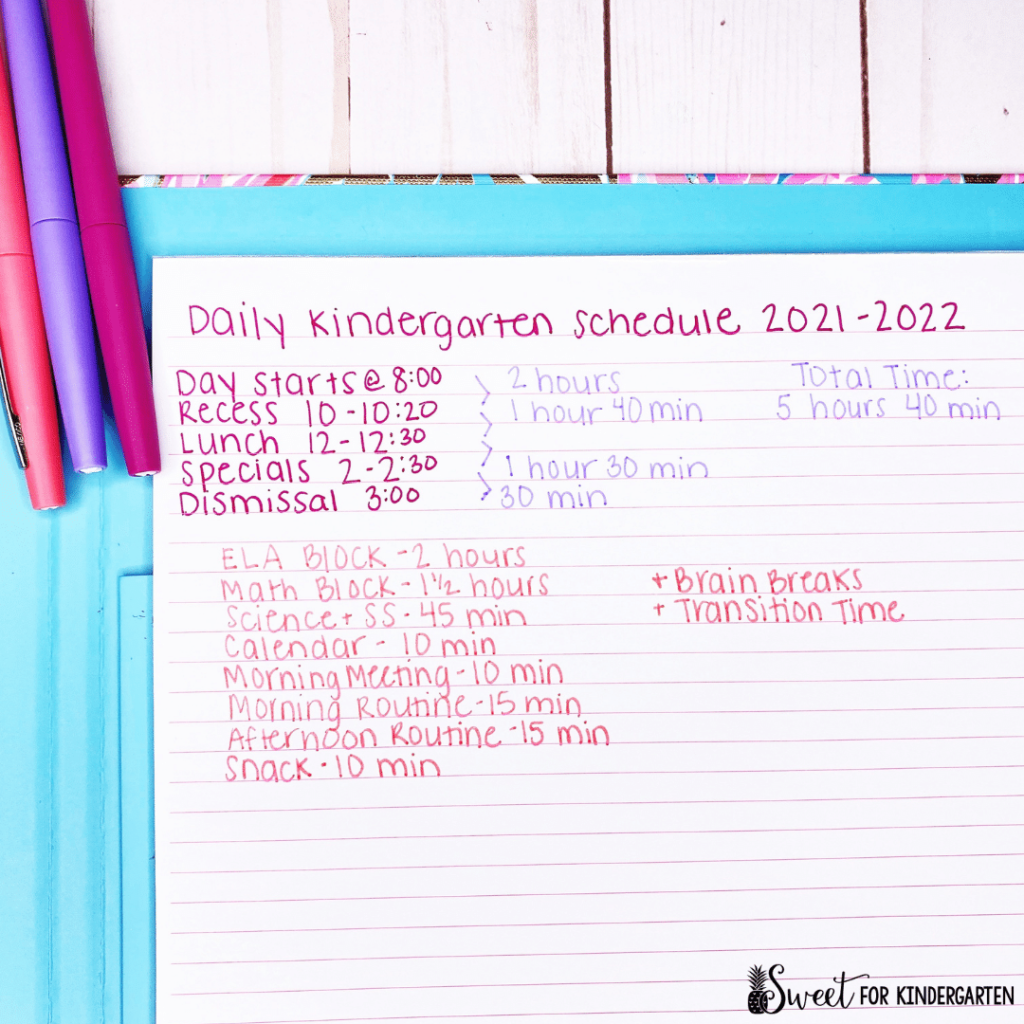 Daily Kindergarten Schedule 2021-2022
Day starts @ 8:00
2 hours
Total Time:
Recess 10-10:20
1 hour 40 min
5 hours 40 min
Lunch 12-12:30
Specials 2-2:30
1 hour 30 min
Dismissal 3:00
30 min
ELA Block - 2 hours
Math Block - 1 1/2 hours
+ Brain Breaks
Science + SS - 45 min
+ Transition Time
Calendar - 10 min
Morning Meeting - 10 min
Morning Routine - 15 min
Afternoon Routine - 15 min
Snack - 10 min
Sweet FOR KINDERGARTEN